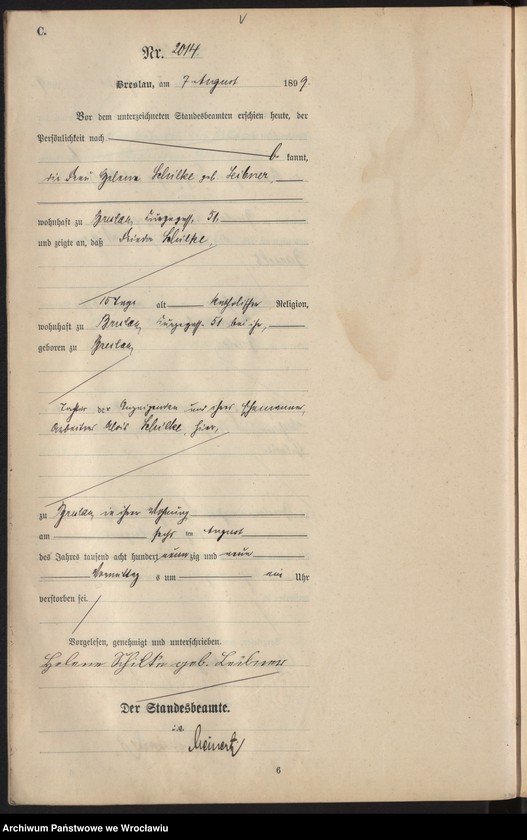 C.
Nr. 2014.
Breslau, am 7 August 1899.
Vor dem unterzeichneten Standesbeamten erschien heute, der
Persönlichkeit nach
b kannt,
die Frau Helene Schilke geb. Leibner,
wohnhaft zu Breslau, 51,
und zeigte an, daß Schilke,
15 Tage alt katholischer Religion,
wohnhaft zu Breslau, 51 bei ihr,
geboren zu Breslau,
Tochter der Anzeigenden und ihres Ehemannes,
Arbeiters Alois Schilke, hier,
zu Breslau, in ihrer Wohnung
am sechs ten August
des Jahres tausend acht hundert neunzig und neun
Vormittags um ein Uhr
verstorben sei.
Vorgelesen, genehmigt und unterschrieben.
Helene Schilke geb. Leibner
Der Standesbeamte.
Meinert
6
Archiwum Państwowe we Wrocławiu